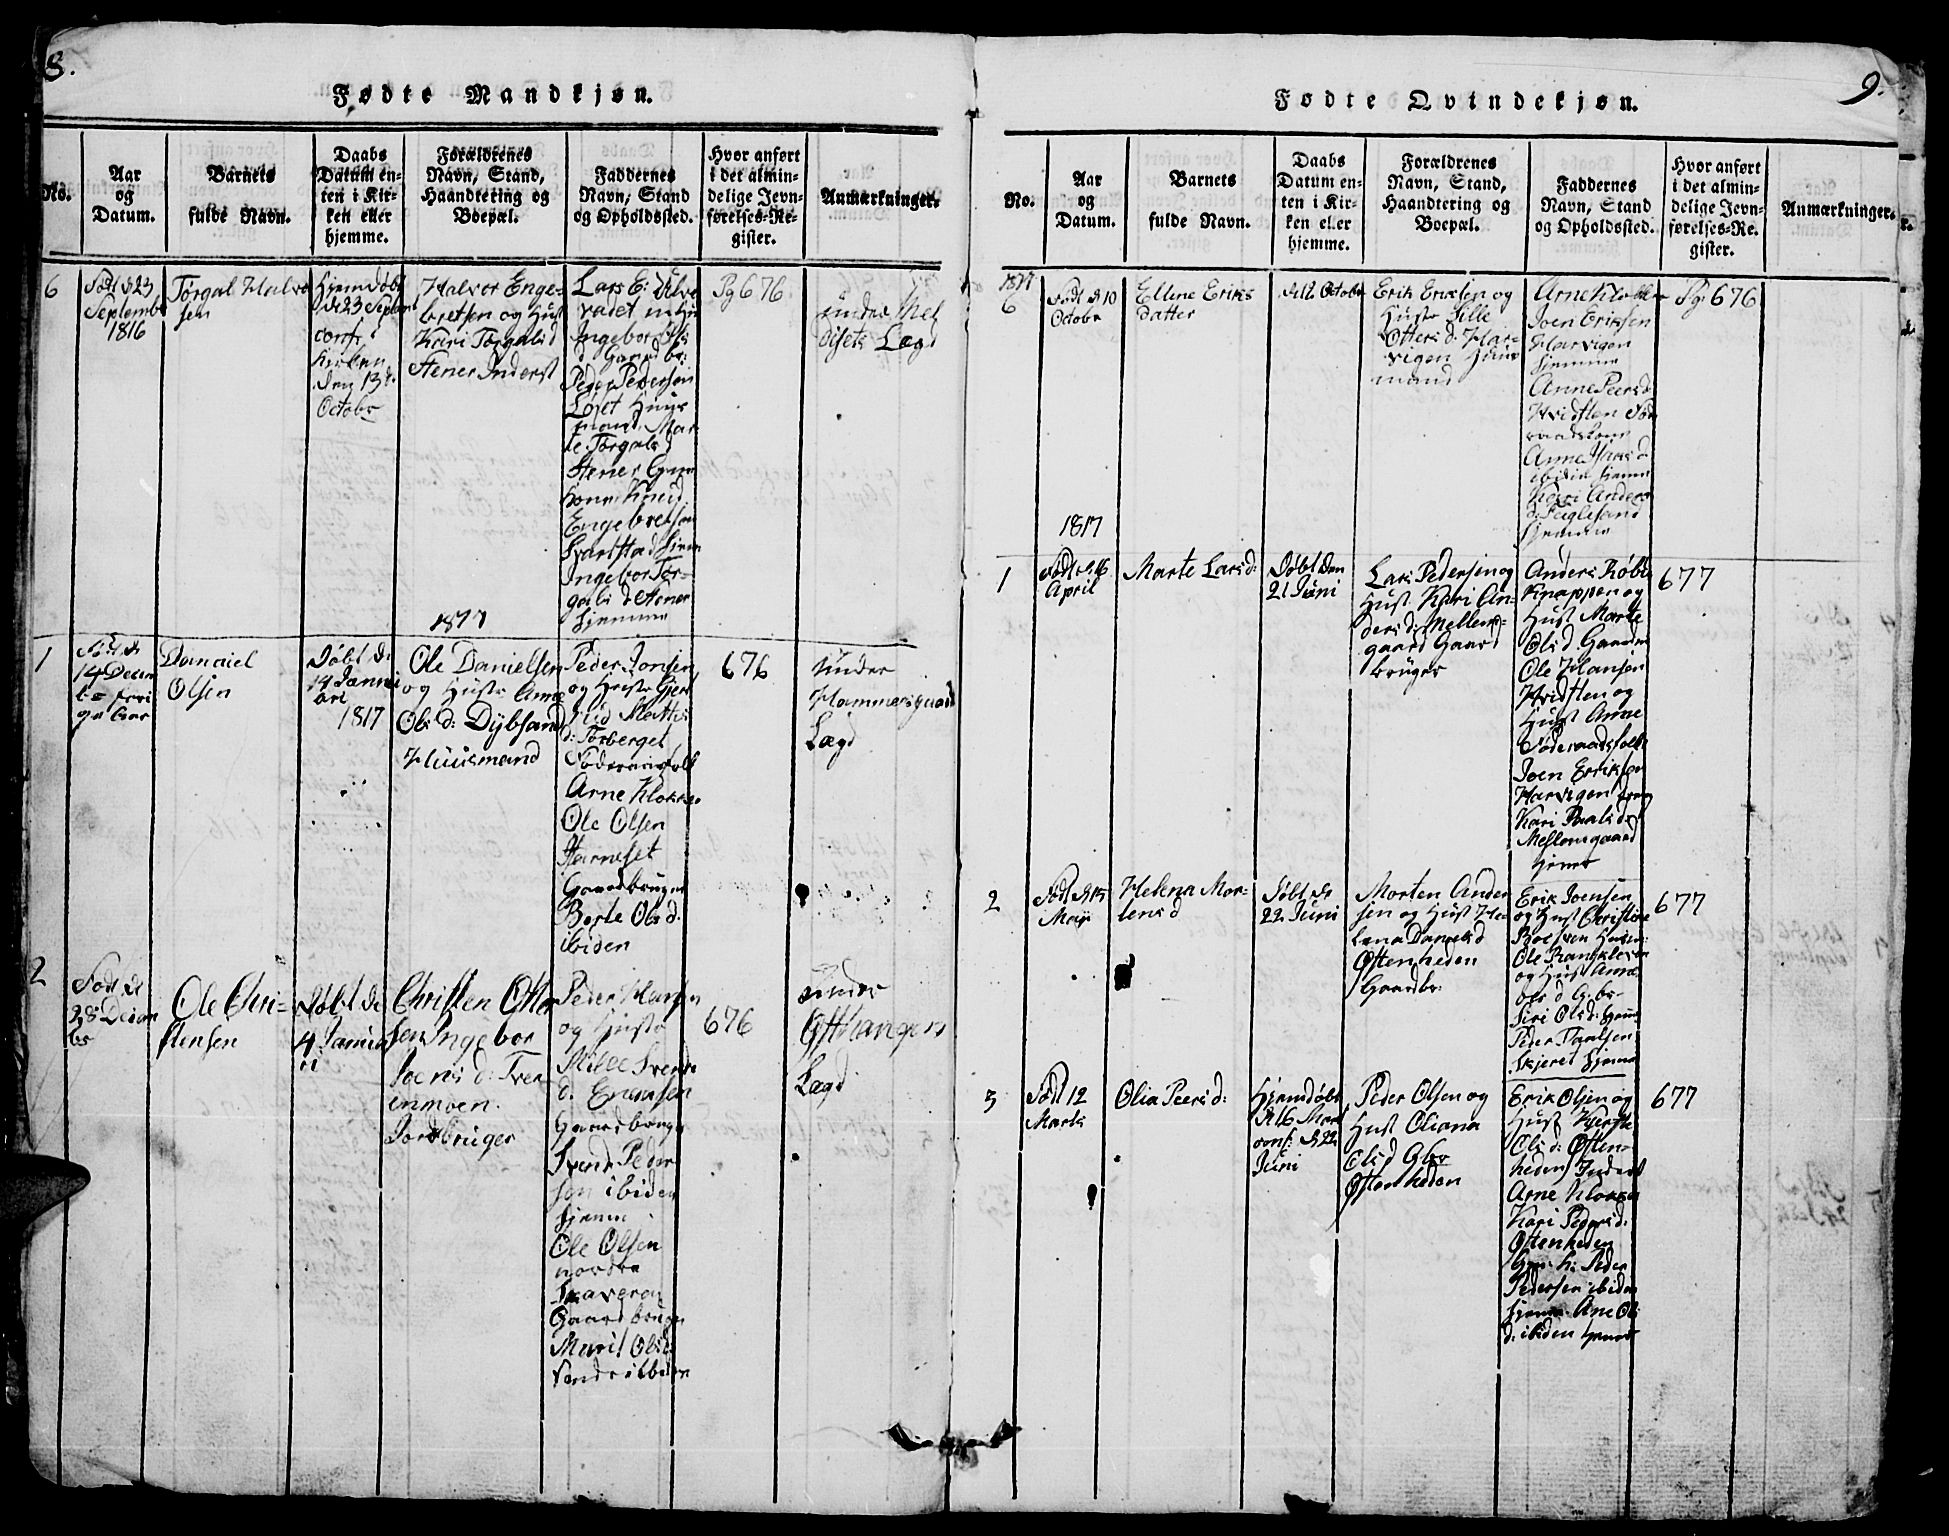 8.
Fødte Mandkjøn.
No.
Aar
og
Datum.
Barnets
fulde Navn.
Daabs
Datum en-
ten i Kir-
ken eller
hjemme.
Forældrenes
Navn, Stand,
Haandtering og
Boepæl.
Faddernes
Navn, Stand
og Opholdssted.
Hvor anført
i det almin-
delige Jevn-
førelses-Re-
gister.
Anmærkninger.
6
Født d 23
Septemb
1816
Torgal Halvor
sen
Hjemdøbt
d 23 Septbr
conf. i
Kirken
den 13de
Octobr
Halvor Enge-
bretsen og Hust
Kari Torgals d
Stener Inderst
Lars E:
Ingebor Ols
Gaard br:
Peder Pedersen
Löset Huus
mand Mar
te Torgals d
Stener
Kone Knud
Engebretsen
Svartstad
Ingebor Tor-
gals d Stener
hjemme
Pg 676
under
Lægd
1817
1
Født d
14 Decem
b
Danaiel
Olsen
Døbt d:
14 Janu
ari
1817
Ole Danielsen
og Hustr Anne
Ols d: Dybsand
Huusmand
Peder Jonsen
og Hustr Gjert
rud Mattis
d: Torberget
Föderaadsfolk
Arne Klokker
Ole Olsen
Harneset
Gaardbruger
Berte Ols d.
ibiden
676
under
Hammersgaard
Lægd
2
Født d
28 Decem
br
Ole Chri-
stensen
Døbt d:
4 Janua
ri
Christen Otter
sen Ingebor
Joens d: Tven
enmoen.
Jordbruger
Peder Hansen
og Hustr
Mille Svends
d.
Gaardbruger
Svend Peder
sen ibiden
hjemm
Ole Olsen
nordre
Skaveren
Gaardbruger
Marit Ols d.
676
under
Lægd
9.
Fødte Qvindekjøn.
No.
Aar
og
Datum.
Barnets
fulde Navn.
Daabs
Datum en-
ten i Kir-
ken eller
hjemme.
Forældrenes
Navn, Stand,
Haandtering og
Boepæl.
Faddernes
Navn, Stand
og Opholdssted.
Hvor anført
i det almin-
delige Jevn-
førelses-Re-
gister.
Anmærkninger.
6
Født d 10
Octobr
Ellene Eriks
datter
d 12 Octobr
Erik Ericksen og
Hustr Sille
Otters d. Har-
vigen Huus
mand
Arne Klokker
Joen Eriksen
Harvigen
hjemme
Anne Peers d
Kridtlen Föde
raadskone
Anne Hans d
ibiden hjemme
Kari Anders
d:
hjemme
Pg 676
1817
1
Født d 16
April
Marte Lars d:
Døbt den
21 Juni
Lars Pedersen og
Hust Kari An-
ders d: Mellem-
gaard Gaard
bruger
Anders
Knappen og
Hust Marte
Ols d. Gaardm
Ole Hansen
Kridtlen og
Hust Anne
Föderaadsfolk
Joen Eriksen
Harvigen
Kari Paals d:
Mellomgaard
hjemme
677
2
Født d 15
Maji
Helena Mor-
tens d
Døbt d
22 Juni
Morten Ander
sen og Hust He-
lena Daniels d
Østenheden
Gaardbr:
Erik Joensen
og Hust Christine
Ole
og Hust Anne
Ols d G.br.
Siri Ols d: hjem
Peder Paalsen
Skjeret hjemme
677
3
Født 12
Marts
Olia Peers d:
Hjemdøbt
d 16 Mart
conf: d 22
Juni
Peder Olsen og
Hust Oliana
Ols d Gbr
Østenheden
Erik Olsen og
Hust
Ols d: Østen-
heden Inderst
Arne Klokker
Kari Peders d:
Østenheden
Peder
Pedersen ibiden
hjemme. Ane Ols
d: ibiden hjemme
677